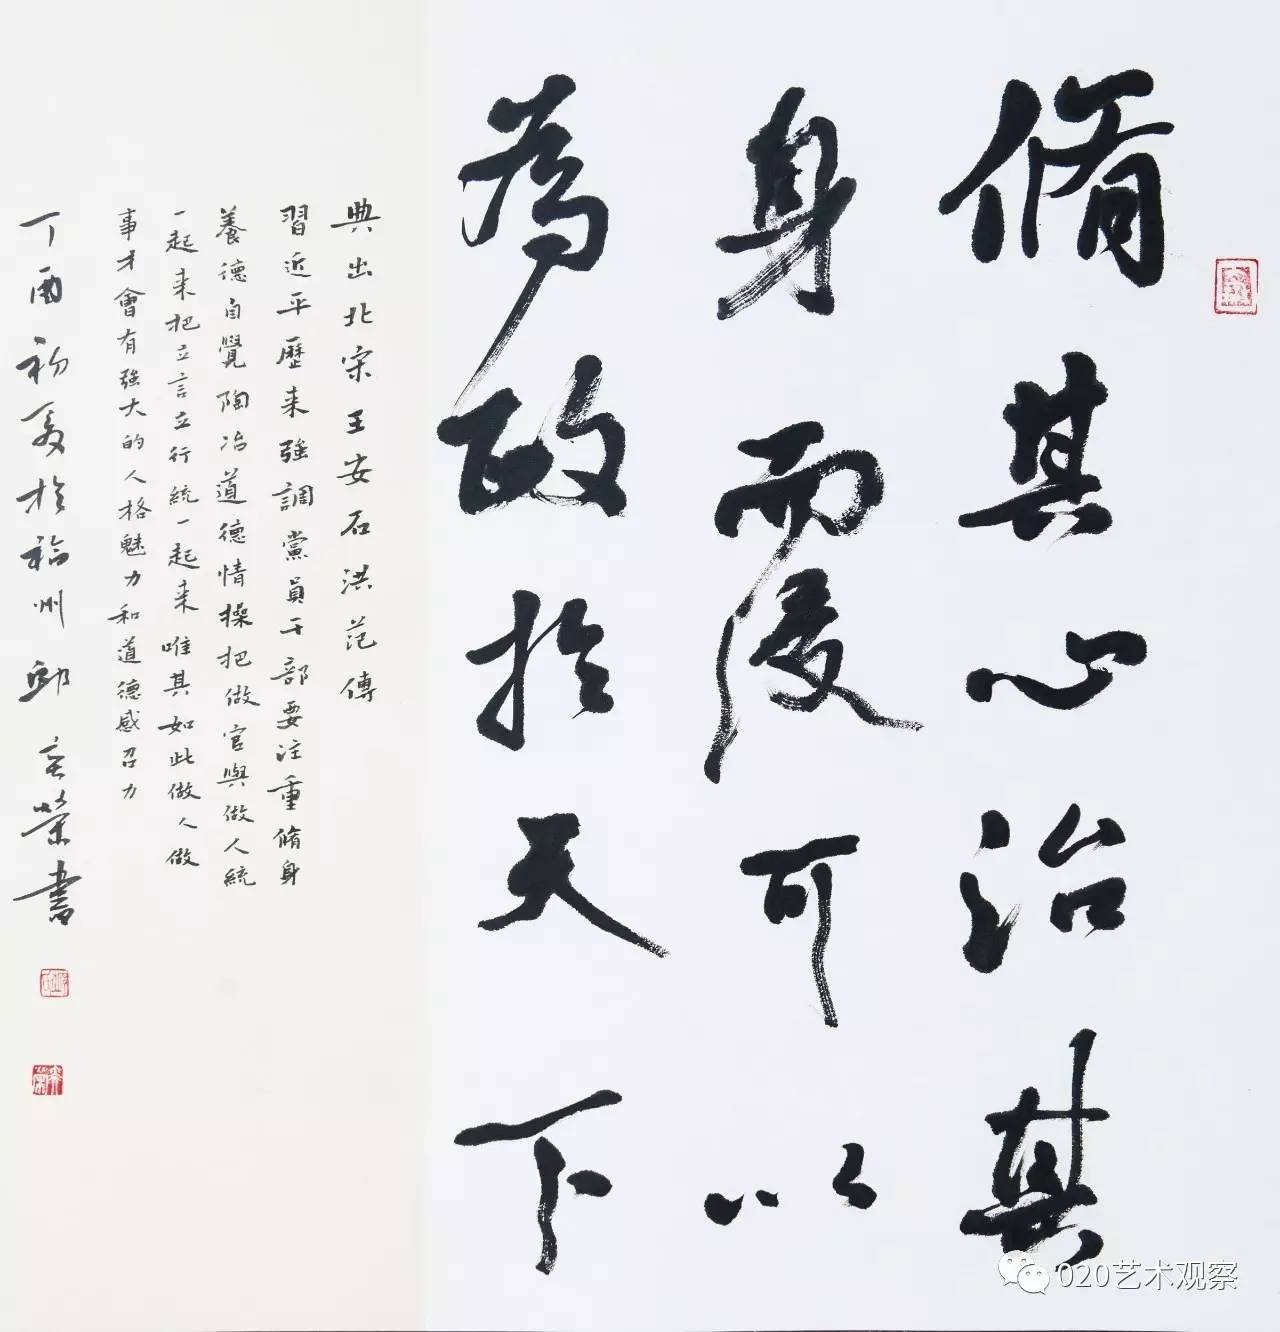 脩其心治其
身而後可以
為政於天下
典出北宋王安石洪范傳
習近平歷来強調黨員干部要注重脩身
養德自覺陶冶道德情操把做官與做人統
一起来把立言立行統一起来唯其如此做人做
事才會有強大的人格魅力和道德感召力
丁酉初夏於福州邱榮書
020艺术观察